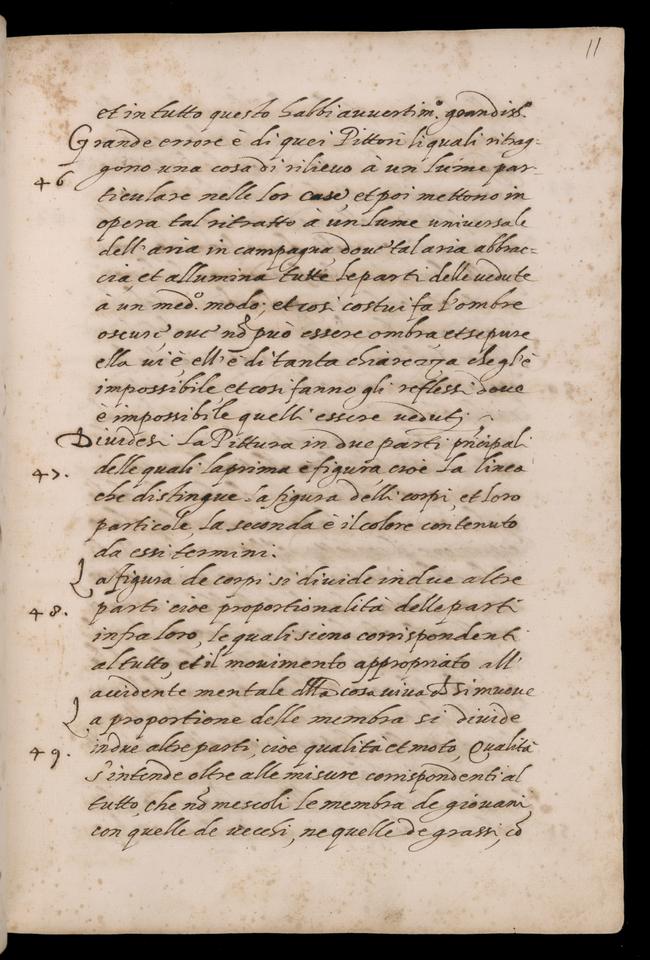 11
et in tutto questo habbi auuertimᵒ. grandissᵒ.
Grande errore è di quei Pittori li quali ritrag=
46
gono una cosa di rilieuo à un lume par=
ticulare nelle lor case, et poi mettono in
opera tal ritratto à un lume uniuersale
dell'aria in campagna, doue tal aria abbrac=
cia, et allumina tutte le parti delle uedute
à un medᵒ. modo; et cosi costui fa l'ombre
oscure, oue nō può essere ombra, et se pure
ella ui è, ell'è di tanta chiarezza che gl'è
impossibile, et cosi fanno gli reflessi doue
è impossibile quelli essere ueduti.
Diuidesi la Pittura in due parti prīcipali
47.
delle quali la prima è figura cioè la linea
che distingue la figura delli corpi, et loro
particole, la seconda è il colore contenuto
da essi termini.
La figura de corpi si diuide in due altre
48.
parti cioè proportionalità delle parti
infra loro, le quali sieno corrispondenti
al tutto, et il mouimento appropriato all'
accidente mentale della cosa uiua chē si muoue
La proportione delle membra si diuide
49.
in due altre parti, cioè qualità et moto, Qualità
s'intende oltre alle misure corrispondenti al
tutto, che nō mescoli le membra de giouani,
con quelle de uecchi, ne quelle de grassi, cō